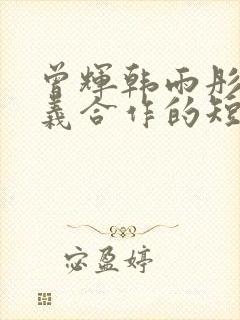 曾辉韩雨彤
义合作的短
宓盈婷